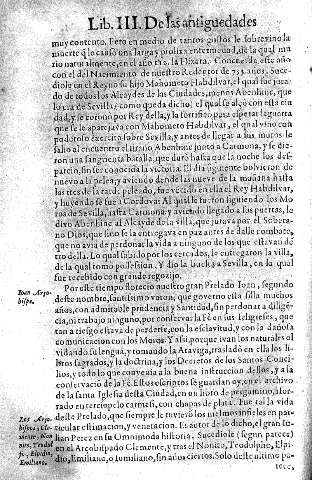 Lib. III. De las antiguedades
muy contento. Pero en medio de tantos gustos le sobrevino la
muerte q̃ lo causò una larga y prolixa enfermedad, de la qual mu
rio naturalmente, en el año de la Hixera. Concuerda este año
con el del Nacimiento de nuestro Redentor de 753 años. Suce
diole en el Reyno su hijo Mahometo Habdilvar, el qual fue jura
do de todos los Alcaydes de las Ciudades, menos Abenhuc, que
lo era de Sevilla, como queda dicho: el qual se alçò con esta ciu
dad, y se coronò por Rey della, y la fortificò para esperar la guerra
que se le aparejava con Mahometo Habdilvar, el qual vino con
poderoso exercito sobre Sevilla, y antes de llegar a sus muros le
saliò al encuentro el tirano Abenhuc junto a Carmona, y se die
ron una sangrienta batalla, que durò hasta que la noche los des-
partiò, sin ser conocida la victoria. El dia siguiente bolvieron de
nuevo a la pelea, y aviendo desde las nueve de la mañana hasta
las tres de la tarde peleado, fue vencido en ella el Rey Habdilvar,
y huyendo se fue a Cordova. Al qual le fuerõ siguiendo los Mo
ros de Sevilla, hasta Carmona, y aviendo llegado a sus puertas, les
dixo Abenhuc al Alcayde de la villa, que jurava por el Sobera-
no Dios, que sino se la entregava en paz antes de dalle combate,
que no avia de perdonar la vida a ninguno de los que estavan dẽ
tro della. Lo qual sabido por los cercados, le entregaron la villa,
de la qual tomò possession. Y dio la buelta a Sevilla, en la qual
fue recebido con grande regozijo.
Por este tiempo florecio nuestro gran Prelado Ioan, segundo
deste nombre, santissimo varon, que governò esta silla muchos
años, con admirable prudencia y Santidad, sin perdonar a diligẽ-
cia, ni trabajo ninguno, por conservar la Fè en sus feligreses, que
tan a riesgo estava de perderse, con la esclavitud, y con la dañosa
comunicacion con los Moros. Y assi, porque ivan los naturales ol
vidando su lengua, y tomando la Araviga, trasladò en ella los li-
bros sagrados, y la doctrina, y los Decretos de los Santos Conci-
lios, y todo lo que convenia a la buena instruccion dellos, y a la
conservaciõ de la Fè. Estos escriptos se guardan oy en el archivo
de la santa Iglesia desta Ciudad, en un libro de pergamino, afor
rado en terciopelo carmesi, con chapas de plata. Fue tal la vida
deste Prelado, que siempre le tuvieron los mesmos infieles en par
ticular estimacion, y veneracion. Es autor de lo dicho, el gran Iu-
lian Perez en su Omnimoda historia. Sucediole (segun parece)
en el Arçobispado Clemente, y tras el Nonito, Teodulpho, El-
pidio, Emiliano, o Iumiliano, sin años ciertos. Solo deste ultimo pa
rece,
Ioan Arço-
bispo.
Los Arço-
bispos, Cle
mente, Non
nito, Teodul
fo, Elpidio,
Emiliano.